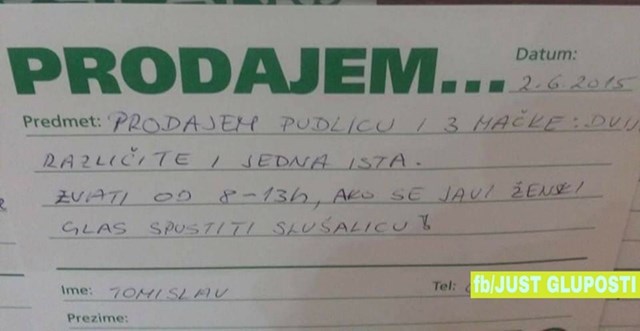 PRODAJEM...
Datum: 2.6.2015
Predmet: PRODAJEM PUDLICU I 3 MAČKE: DVIJ
RAZLIČITE I JEDNA ISTA.
ZVATI OD 8-13h, AKO SE JAVI ŽENSKI
GLAS SPUSTITI SLUŠALICU!
Ime: TOMISLAV Tel:
fb/JUST GLUPOSTI
Prezime: